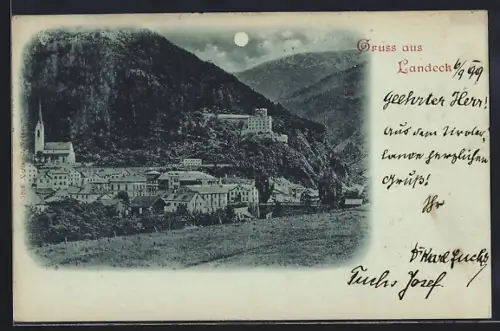 Gruss aus
Landeck
6/9 99
Geehrter Herr!
Aus dem Tiroler-
lande herzlichen
Gruß!
Ihr
Dr Karl Fuchs
Fuchs Josef.